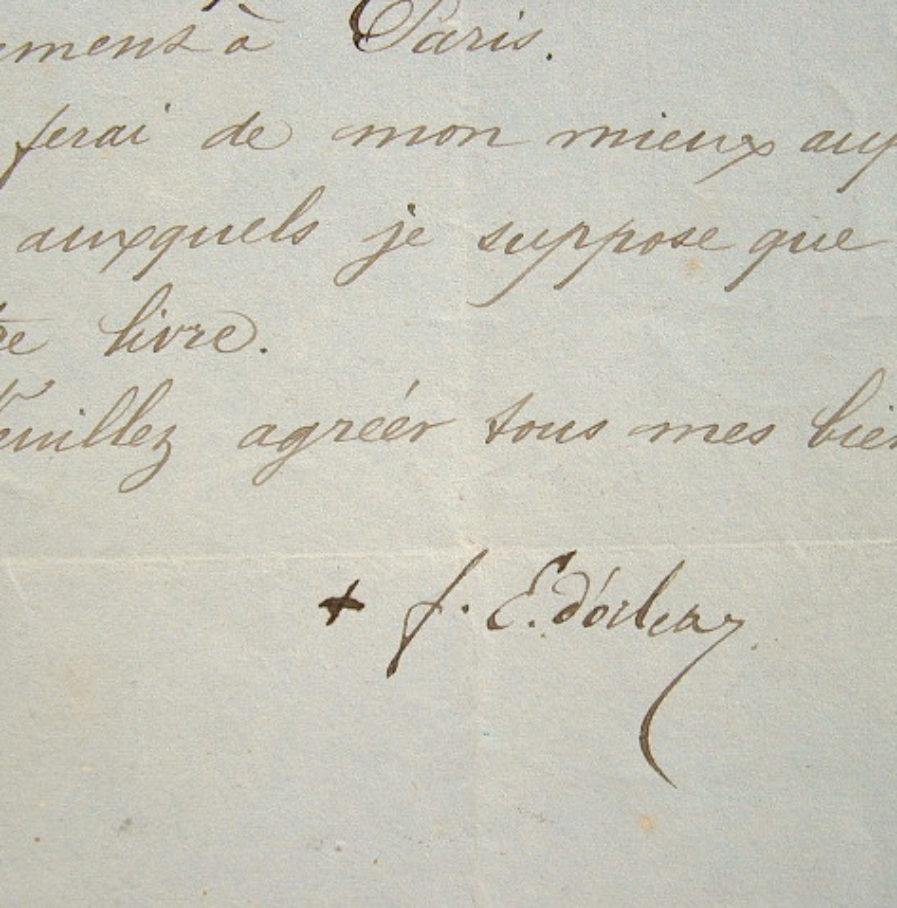 ement à Paris.
ferai de mon mieux aup
auxquels je suppose que
re livre.
Veuillez agréér tous mes bien
+ f. E.